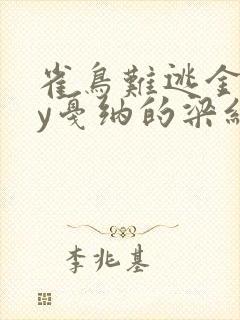 雀鳥難逃金
y戛纳的梁
李兆基